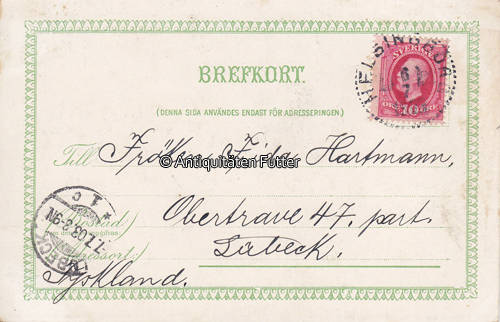 BREFKORT.
(DENNA SIDA ANVÄNDES ENDAST FÖR ADRESSERINGEN)
SVERIGE
10 ÖRE
HELSINGBORG
Till Fröken Frida Hartmann,
© Antiquitäten Futter
Obertrave 47. part.
Lübeck.
Tyskland.
LÜBECK
1 c
7.03.2-3N